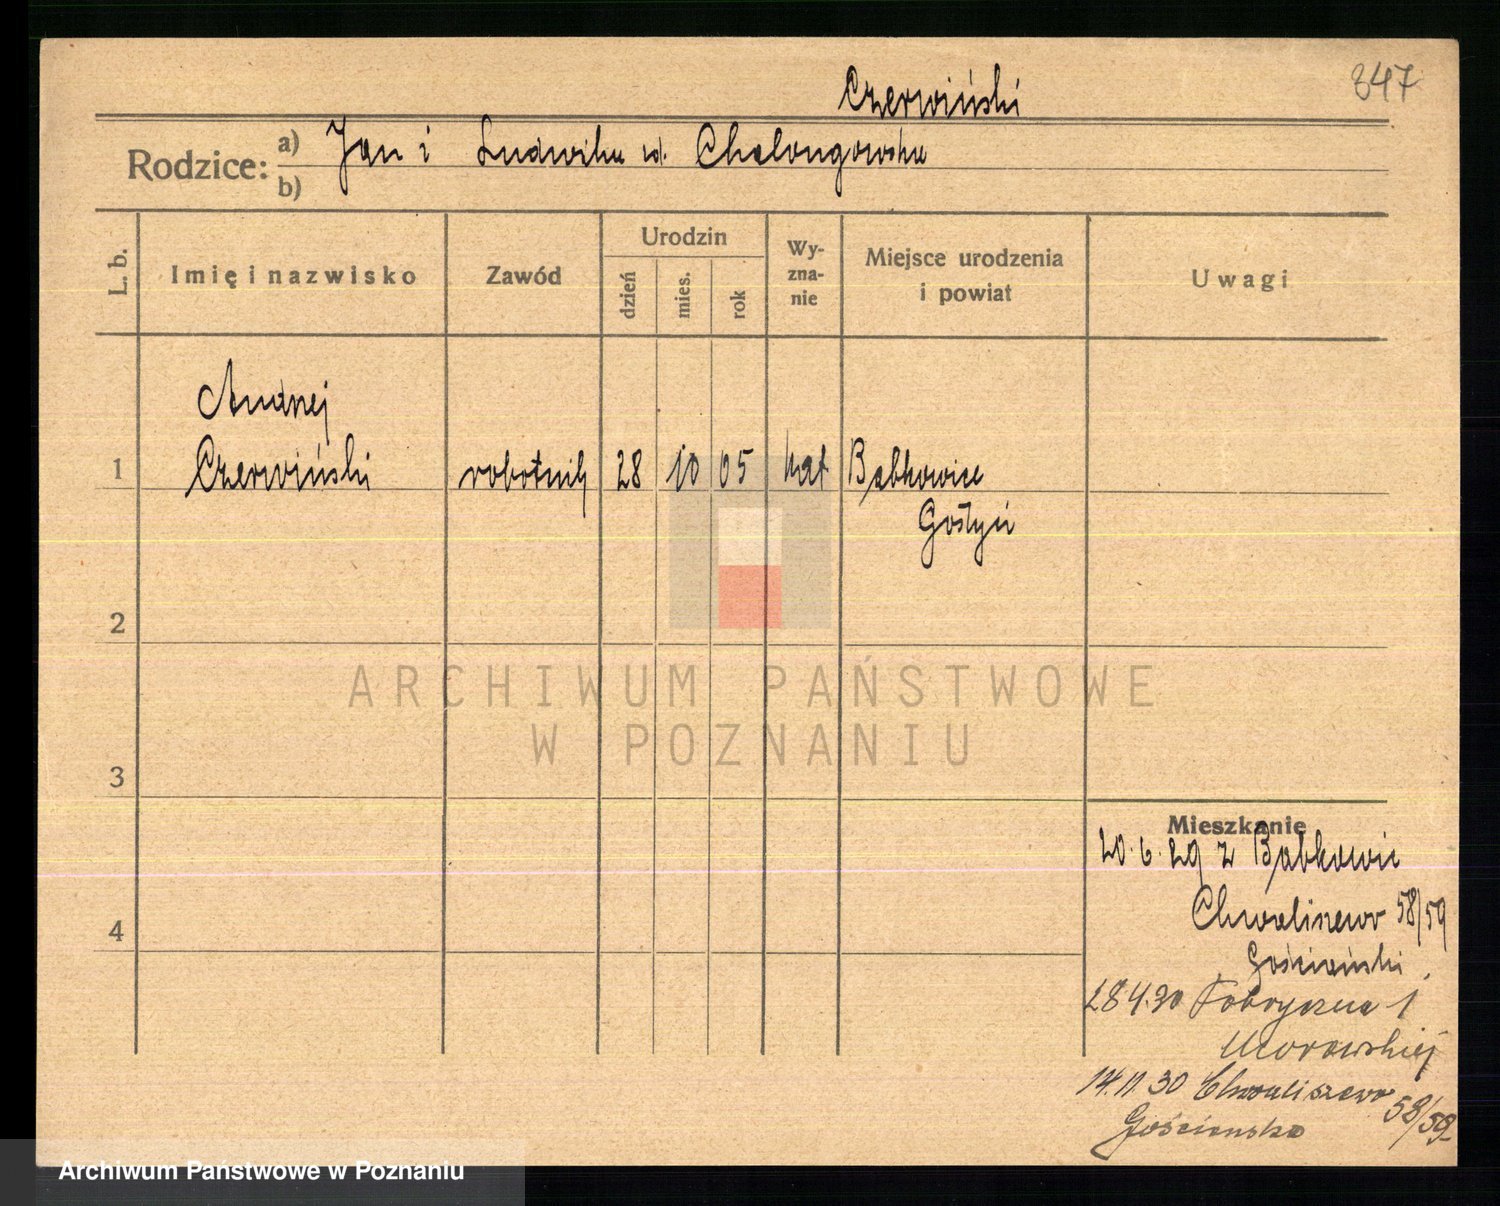 847
Czerwiński
Rodzice: a) Jan i Ludwika zd.
b)
L. b.
Imię i nazwisko
Zawód
Urodzin
dzień
mies.
rok
Wy-
zna-
nie
Miejsce urodzenia
i powiat
Uwagi
Andrzej
1 Czerwiński robotnik 28 10 05 kat Bąbkowice
Gostyń
2
ARCHIWUM PAŃSTWOWE
W POZNANIU
3
Mieszkanie
20.6.29 z Bąbkowic
Chwaliszewo 58/59
4
28.4.30 Fabryczna 1
Morawskiej
14.11.30 Chwaliszewo 58/59
Archiwum Państwowe w Poznaniu